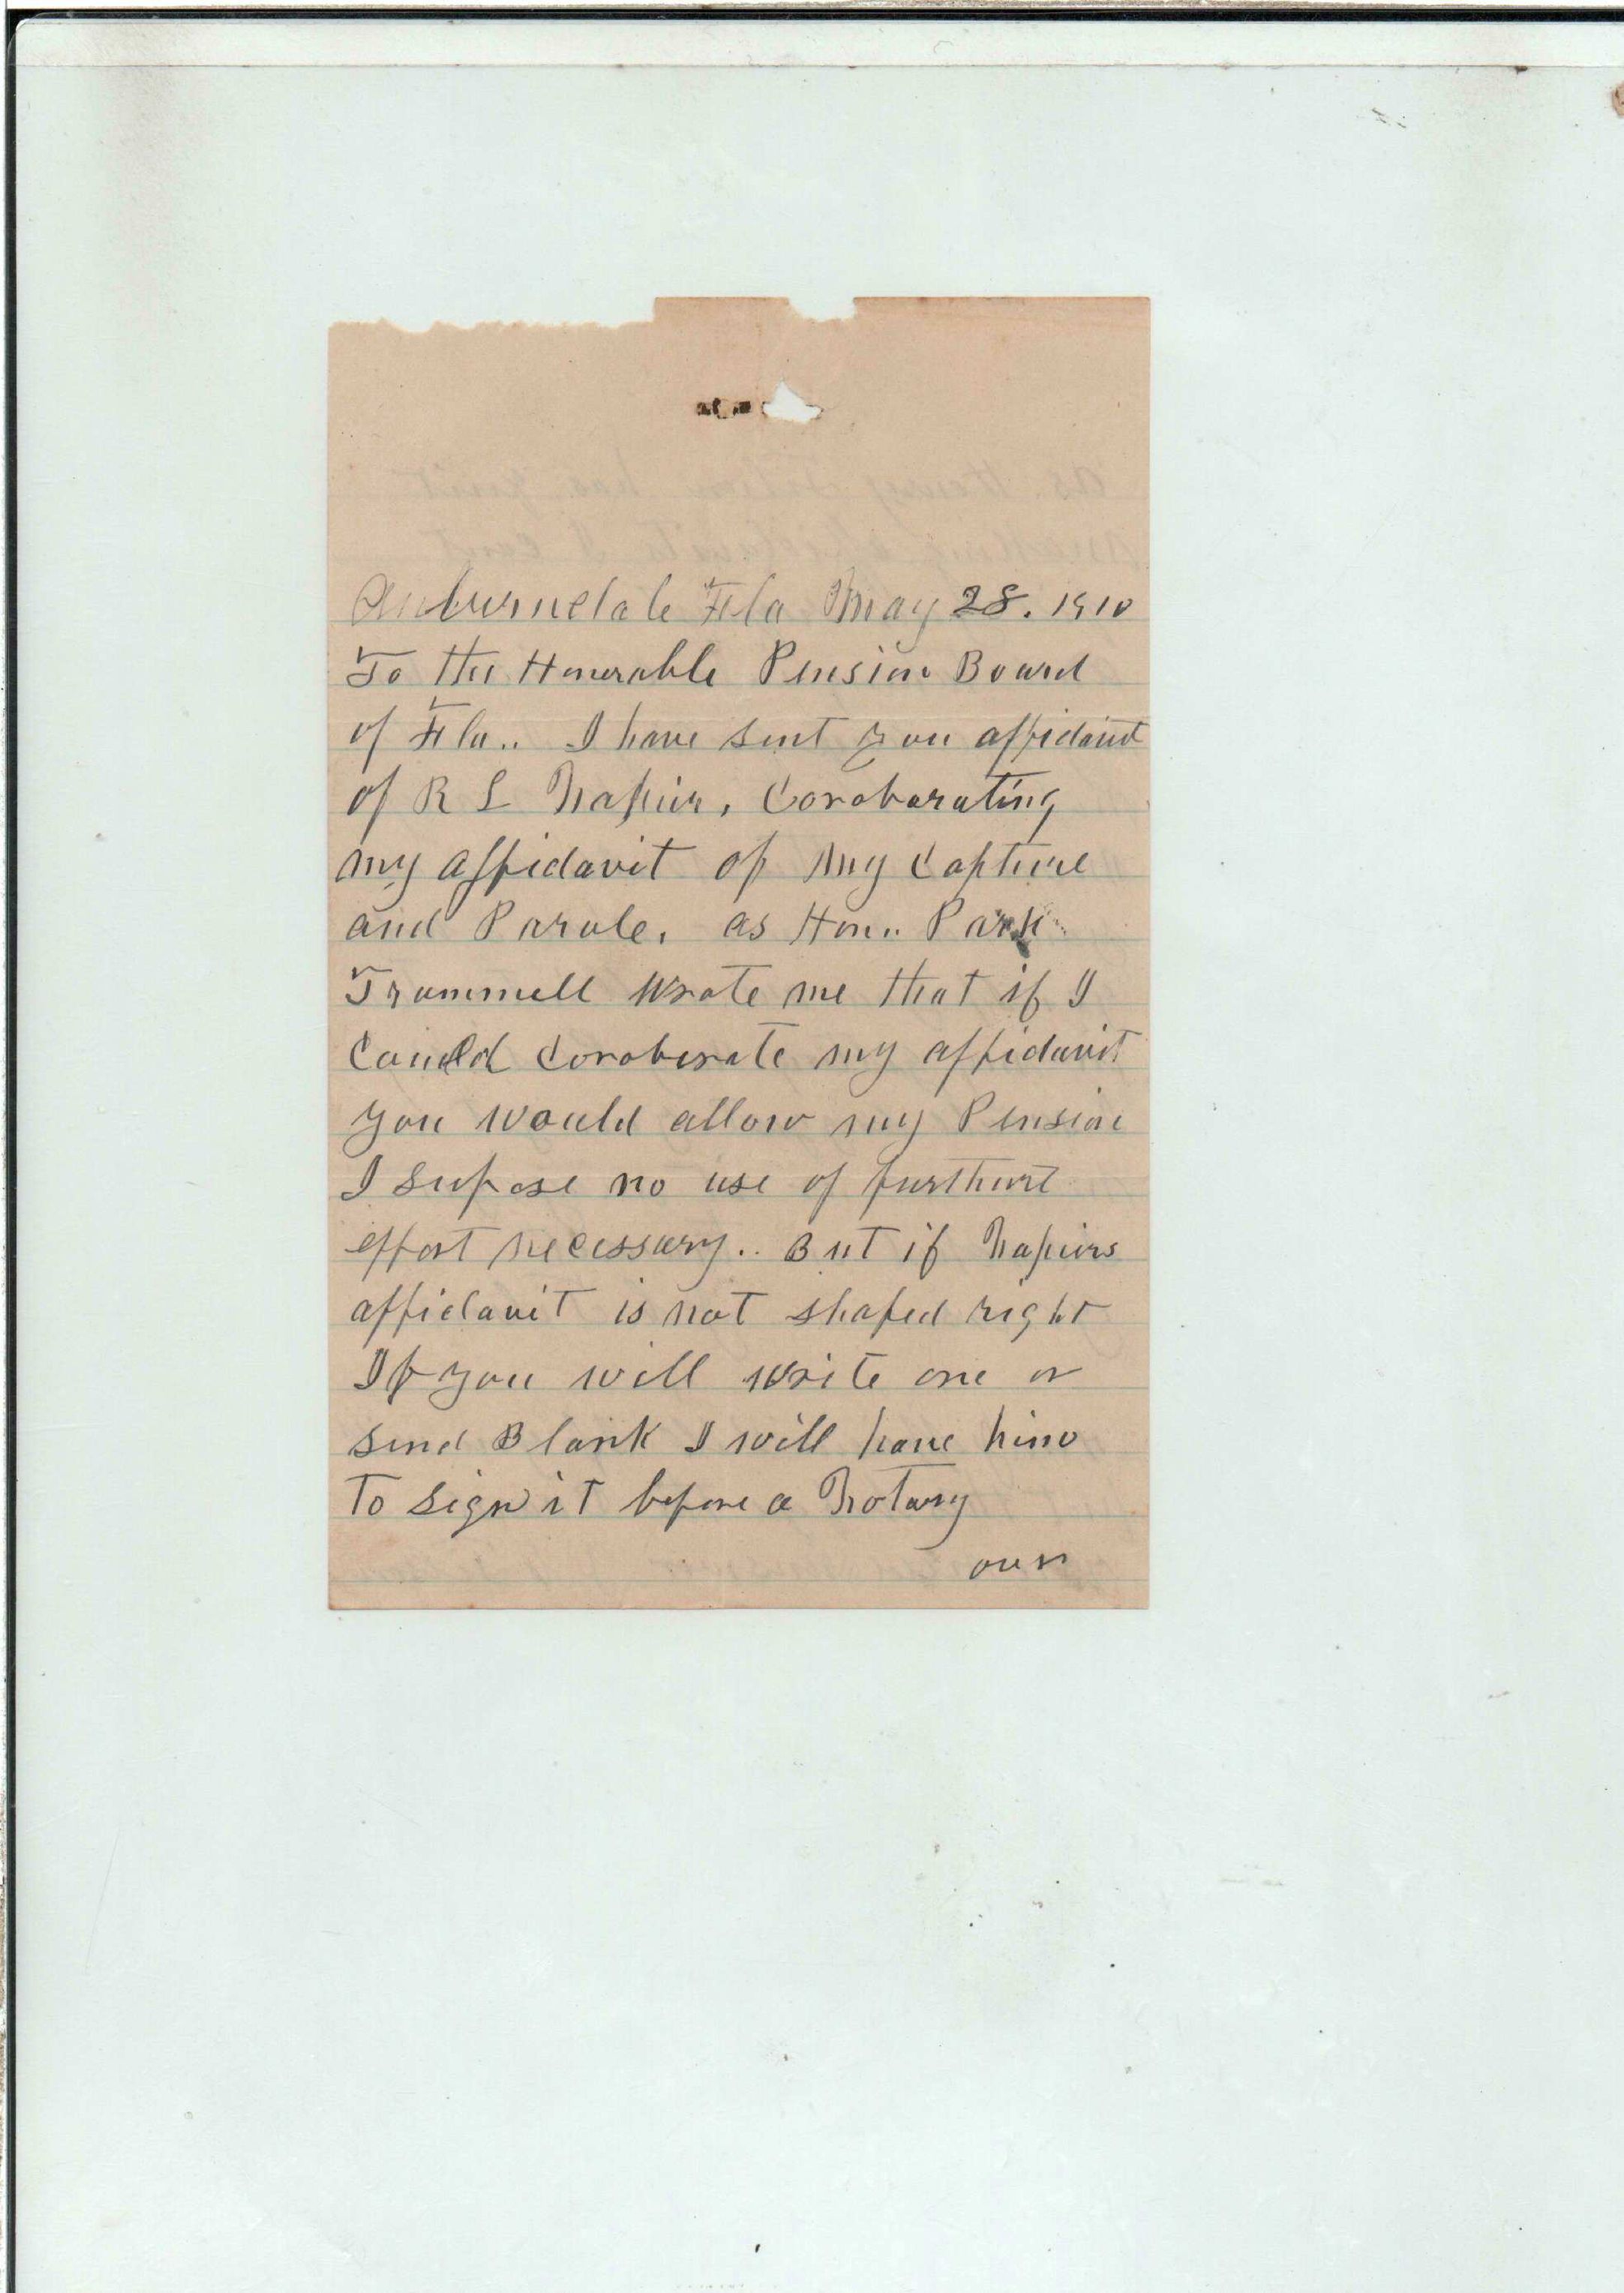 Auburndale Fla May 28. 1910
To the Honerable Pension Board
of Fla.. I have sent you affidavit
of R L Napier, Coroborating
my affidavit of my Capture
and Parole. as Hon.. Park
Trammell wrote me that if I
Could Coroberate my affidavit
you would allow my Pension
I Supose no use of furthure
effort necessary.. But if Napiers
affidavit is not shaped right
If you will write one or
send Blank I will have him
To sign it before a Notary
over